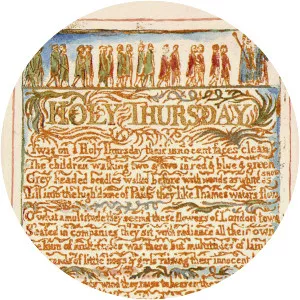 HOLY THURSDAY
Twas on a Holy Thursday their innocent faces clean
The children walking two & two in red & blue & green
Grey headed beadles walkd before with wands as white as snow
Till into the high dome of Pauls they like Thames waters flow
O what a multitude they seemd these flowers of London town
Seated in companies they sit with radiance all their own
hum of multitudes was there but multitudes of lambs
ands of little boys & girls raising their innocent
wind they raise to heaven the